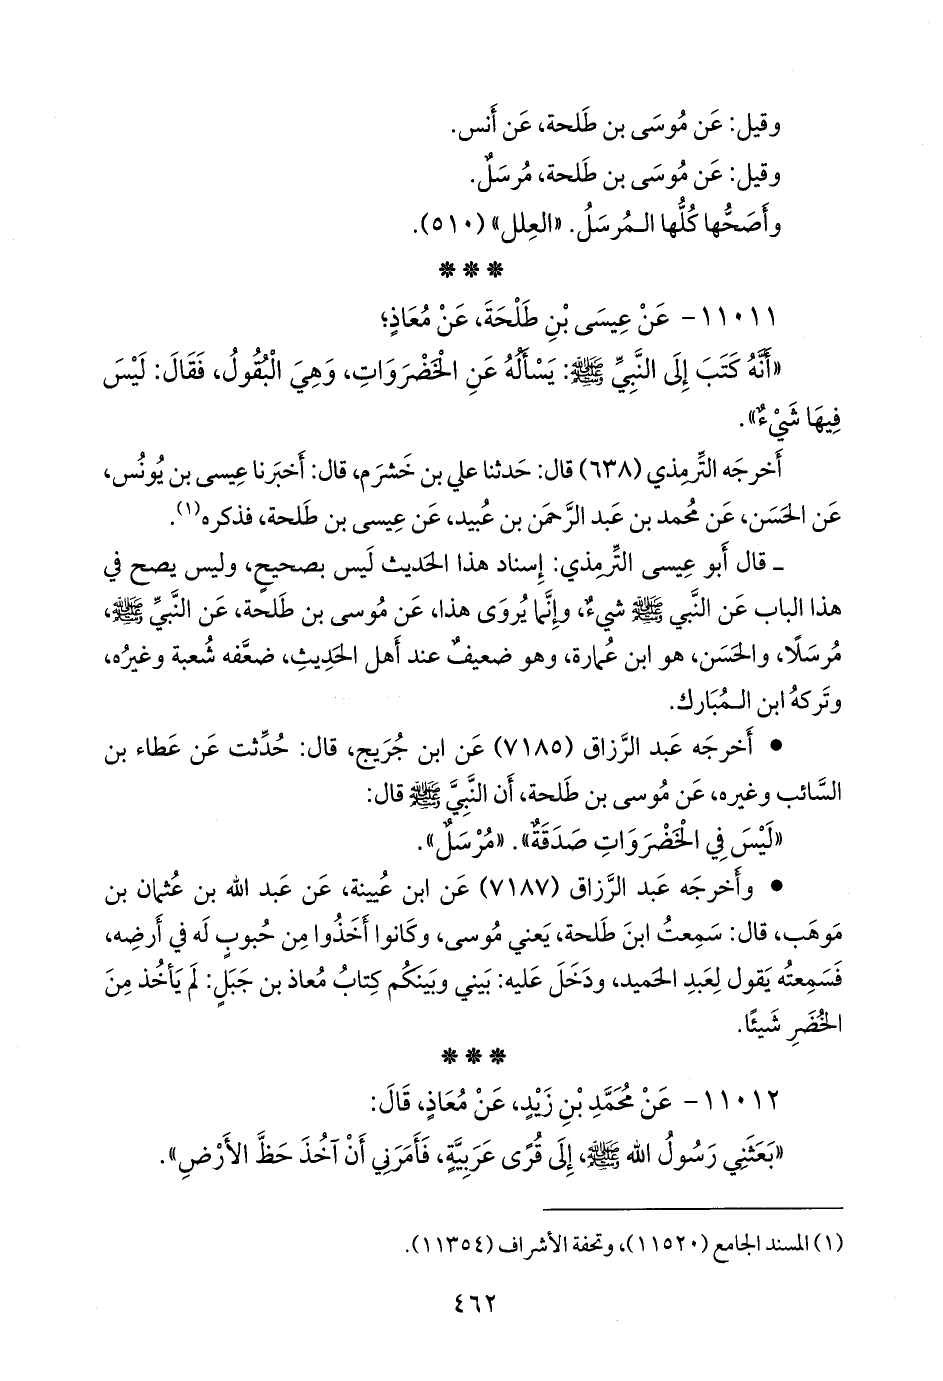 وقيل: عَن مُوسَى بن طَلحة، عَن أَنس.
وقيل: عَن مُوسَى بن طَلحة، مُرسَلٌ.
وأَصَحُّها كُلُّها الـمُرسَلُ. «العِلل» (٥١٠).
* * *
١١٠١١- عَنْ عِيسَى بْنِ طَلْحَةَ، عَنْ مُعَاذٍ؛
«أَنَّهُ كَتَبَ إِلَى النَّبِيِّ ﷺ: يَسْأَلُهُ عَنِ الْخَضْرَوَاتِ، وَهِيَ الْبُقُولُ، فَقَالَ: لَيْسَ
فِيهَا شَيْءٌ».
أَخرجَه التِّرمِذي (٦٣٨) قال: حَدثنا علي بن خَشرَم، قال: أَخبَرنا عِيسى بن يُونُس،
عَن الحَسَن، عَن مُحمد بن عَبد الرَّحمَن بن عُبيد، عَن عِيسى بن طَلحة، فذكره(١).
ـ قال أَبو عِيسى التِّرمِذي: إِسناد هذا الحَديث لَيس بصَحيحٍ، وليس يصح في
هذا الباب عَن النَّبي ﷺ شيءٌ، وإِنَّما يُروَى هذا، عَن مُوسى بن طَلحة، عَن النَّبيِّ ﷺ،
مُرسَلًا، والحَسَن، هو ابن عُمارة، وهو ضعيفٌ عند أَهل الحَدِيثِ، ضعَّفه شُعبة وغيرُه،
وتَركهُ ابن الـمُبَارك.
• أَخرجَه عَبد الرَّزاق (٧١٨٥) عَن ابن جُرَيج، قال: حُدِّثت عَن عَطاء بن
السَّائب وغيره، عَن مُوسى بن طَلحة، أَن النَّبيَّ ﷺ قال:
«لَيْسَ فِي الْخَضْرَوَاتِ صَدَقَةٌ». «مُرْسَلٌ».
• وأَخرجَه عَبد الرَّزاق (٧١٨٧) عَن ابن عُيينة، عَن عَبد الله بن عُثمان بن
مَوهَب، قال: سَمِعتُ ابنَ طَلحة، يَعني مُوسى، وكَانوا أَخَذُوا مِن حُبوبٍ لَه في أَرضِه،
فَسَمِعتُه يَقول لِعَبدِ الحَميد، ودَخَلَ عَليه: بَيني وبَينَكُم كِتابُ مُعاذ بن جَبَلٍ: لَم يَأخُذ مِنَ
الخُضَرِ شَيئًا.
* * *
١١٠١٢- عَنْ مُحَمَّدِ بْنِ زَيْدٍ، عَنْ مُعَاذٍ، قَالَ:
«بَعَثَنِي رَسُولُ الله ﷺ، إِلَى قُرًى عَرَبِيَّةٍ، فَأَمَرَنِي أَنْ آخُذَ حَظَّ الأَرْضِ».
(١) المسند الجامع (١١٥٢٠)، وتحفة الأشراف (١١٣٥٤).
٤٦٢